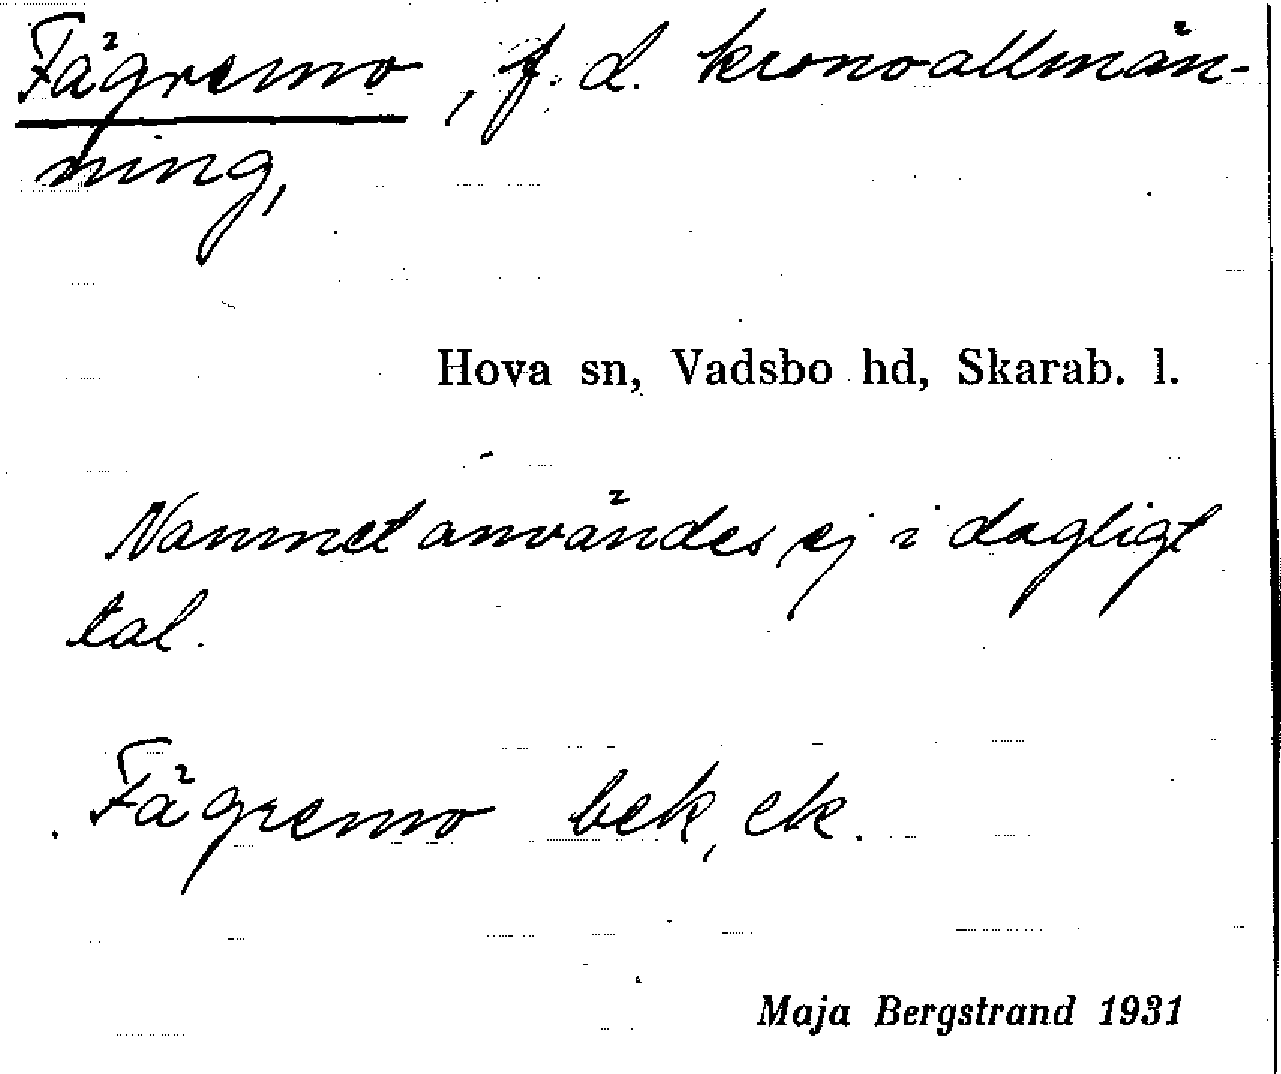 Fägremo, f.d. kronoallmän-
ning,
Hova sn, Vadsbo hd, Skarab. l.
Namnet användes ej i dagligt
tal.
Fägremo bek, ek.
Maja Bergstrand 1931